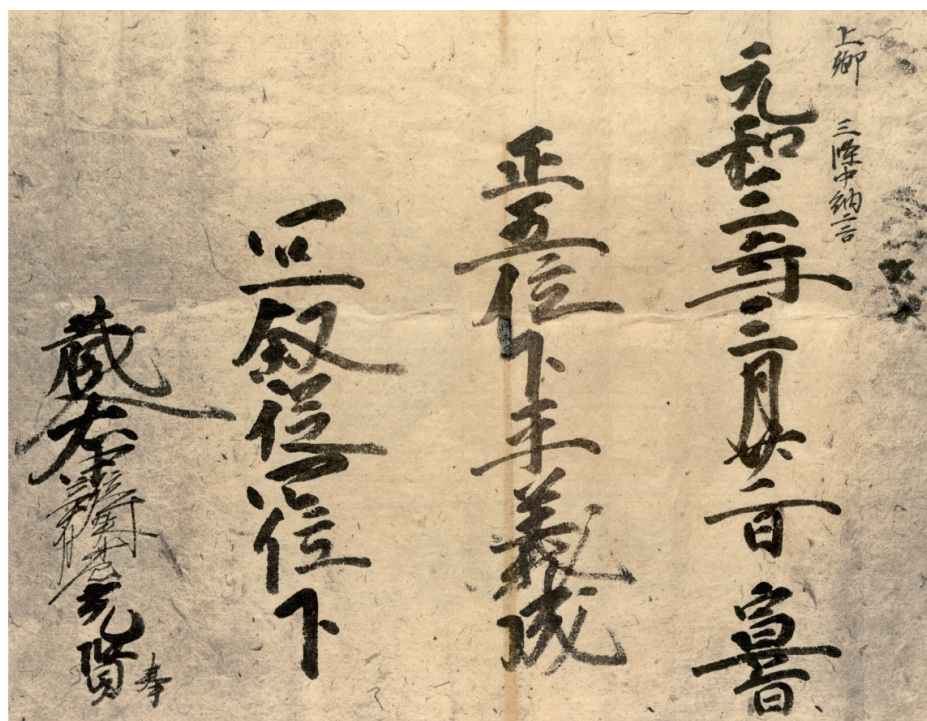 上卿 三條中納言
元和三年三月廿一日 宣旨
正五位下平義成
宜叙従四位下
蔵人 藤原光賢 奉